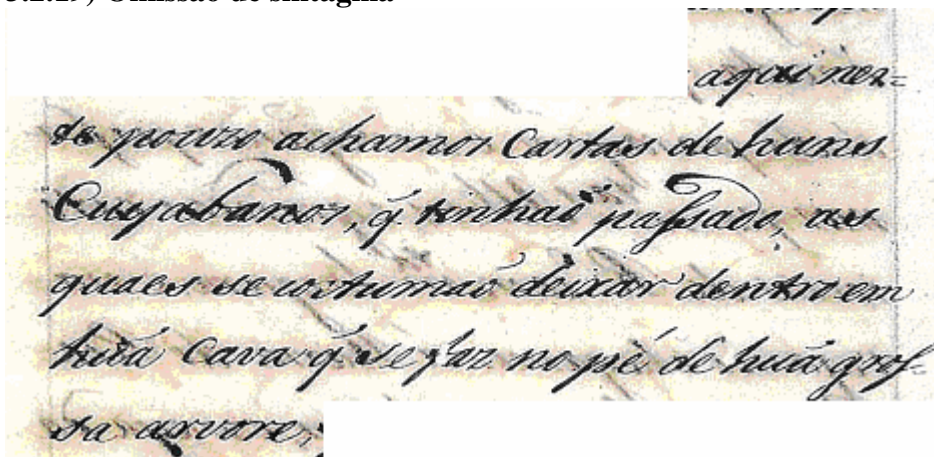 3.2.19) Omissão de sintagma
aqui nes=
te pouzo achamos Cartas de huns
Cuyabanos, q̃ tinhaõ passado, as
quaes se costumaõ deixar dentro em
huã Cava q̃ se faz no pé de huã gros-
sa arvore,